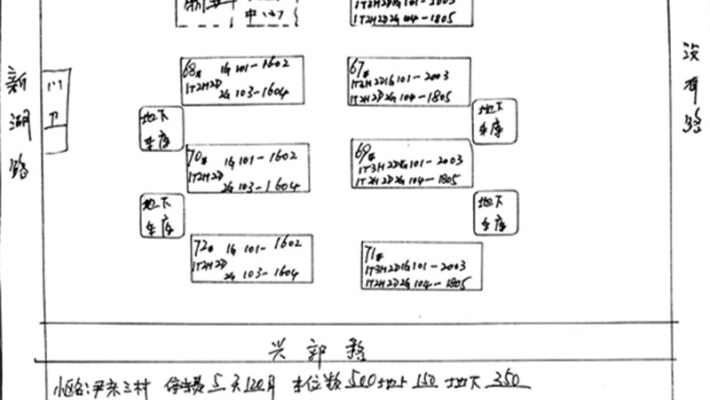 1T2H2D2G 104-1805
新湖路
门卫
没有路
68# 1G 101-1602
1T2H2D
2G 103-1604
67#
1T3H2D1G 101-2003
1T2H2D2G 104-1805
地下
车库
地下
车库
70# 1G 101-1602
1T2H2D
2G 103-1604
69#
1T3H2D1G 101-2003
1T2H2D2G 104-1805
地下
车库
地下
车库
72# 1G 101-1602
1T2H2D
2G 103-1604
71#
1T3H2D1G 101-2003
1T2H2D2G 104-1805
兴 路
小区名:尹东三村 停车费 5天120月 车位数 500 地上 150 地下 350